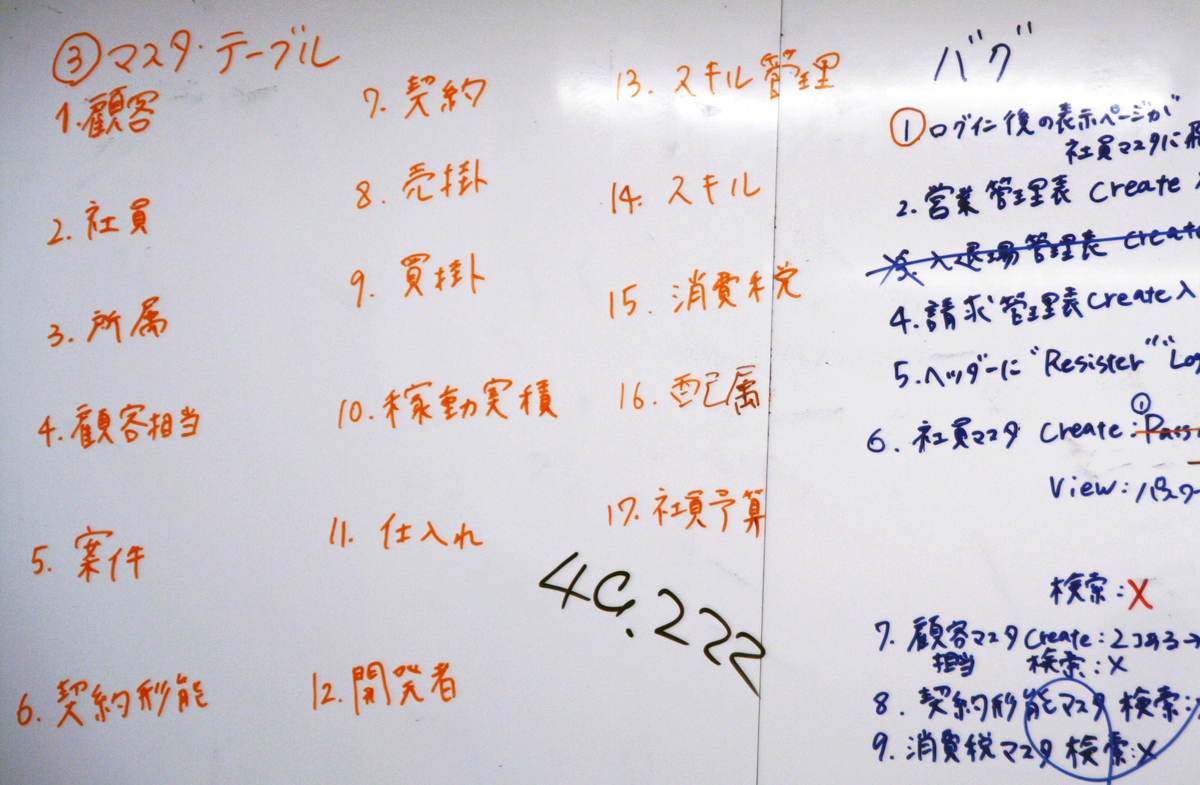 ③マスタ・テーブル
1.顧客
2.社員
3.所属
4.顧客担当
5.案件
6.契約形能
7.契約
8.売掛
9.買掛
10.稼動実積
11.仕入れ
12.開発者
13.スキル管理
14.スキル
15.消費税
16.配属
17.社員予算
バグ
①ログイン後の表示ページが
社員マスタに
2.営業管理表 Create
入退場管理表 Create
4.請求管理表Create入
5.ヘッダーに"Resister""Log
6.社員マスタ Create:①Pass
View:パスワー
検索:X
7.顧客マスタCreate:2コある→
担当 検索:X
8.契約形能マスタ 検索:
9.消費税マスタ 検索:X